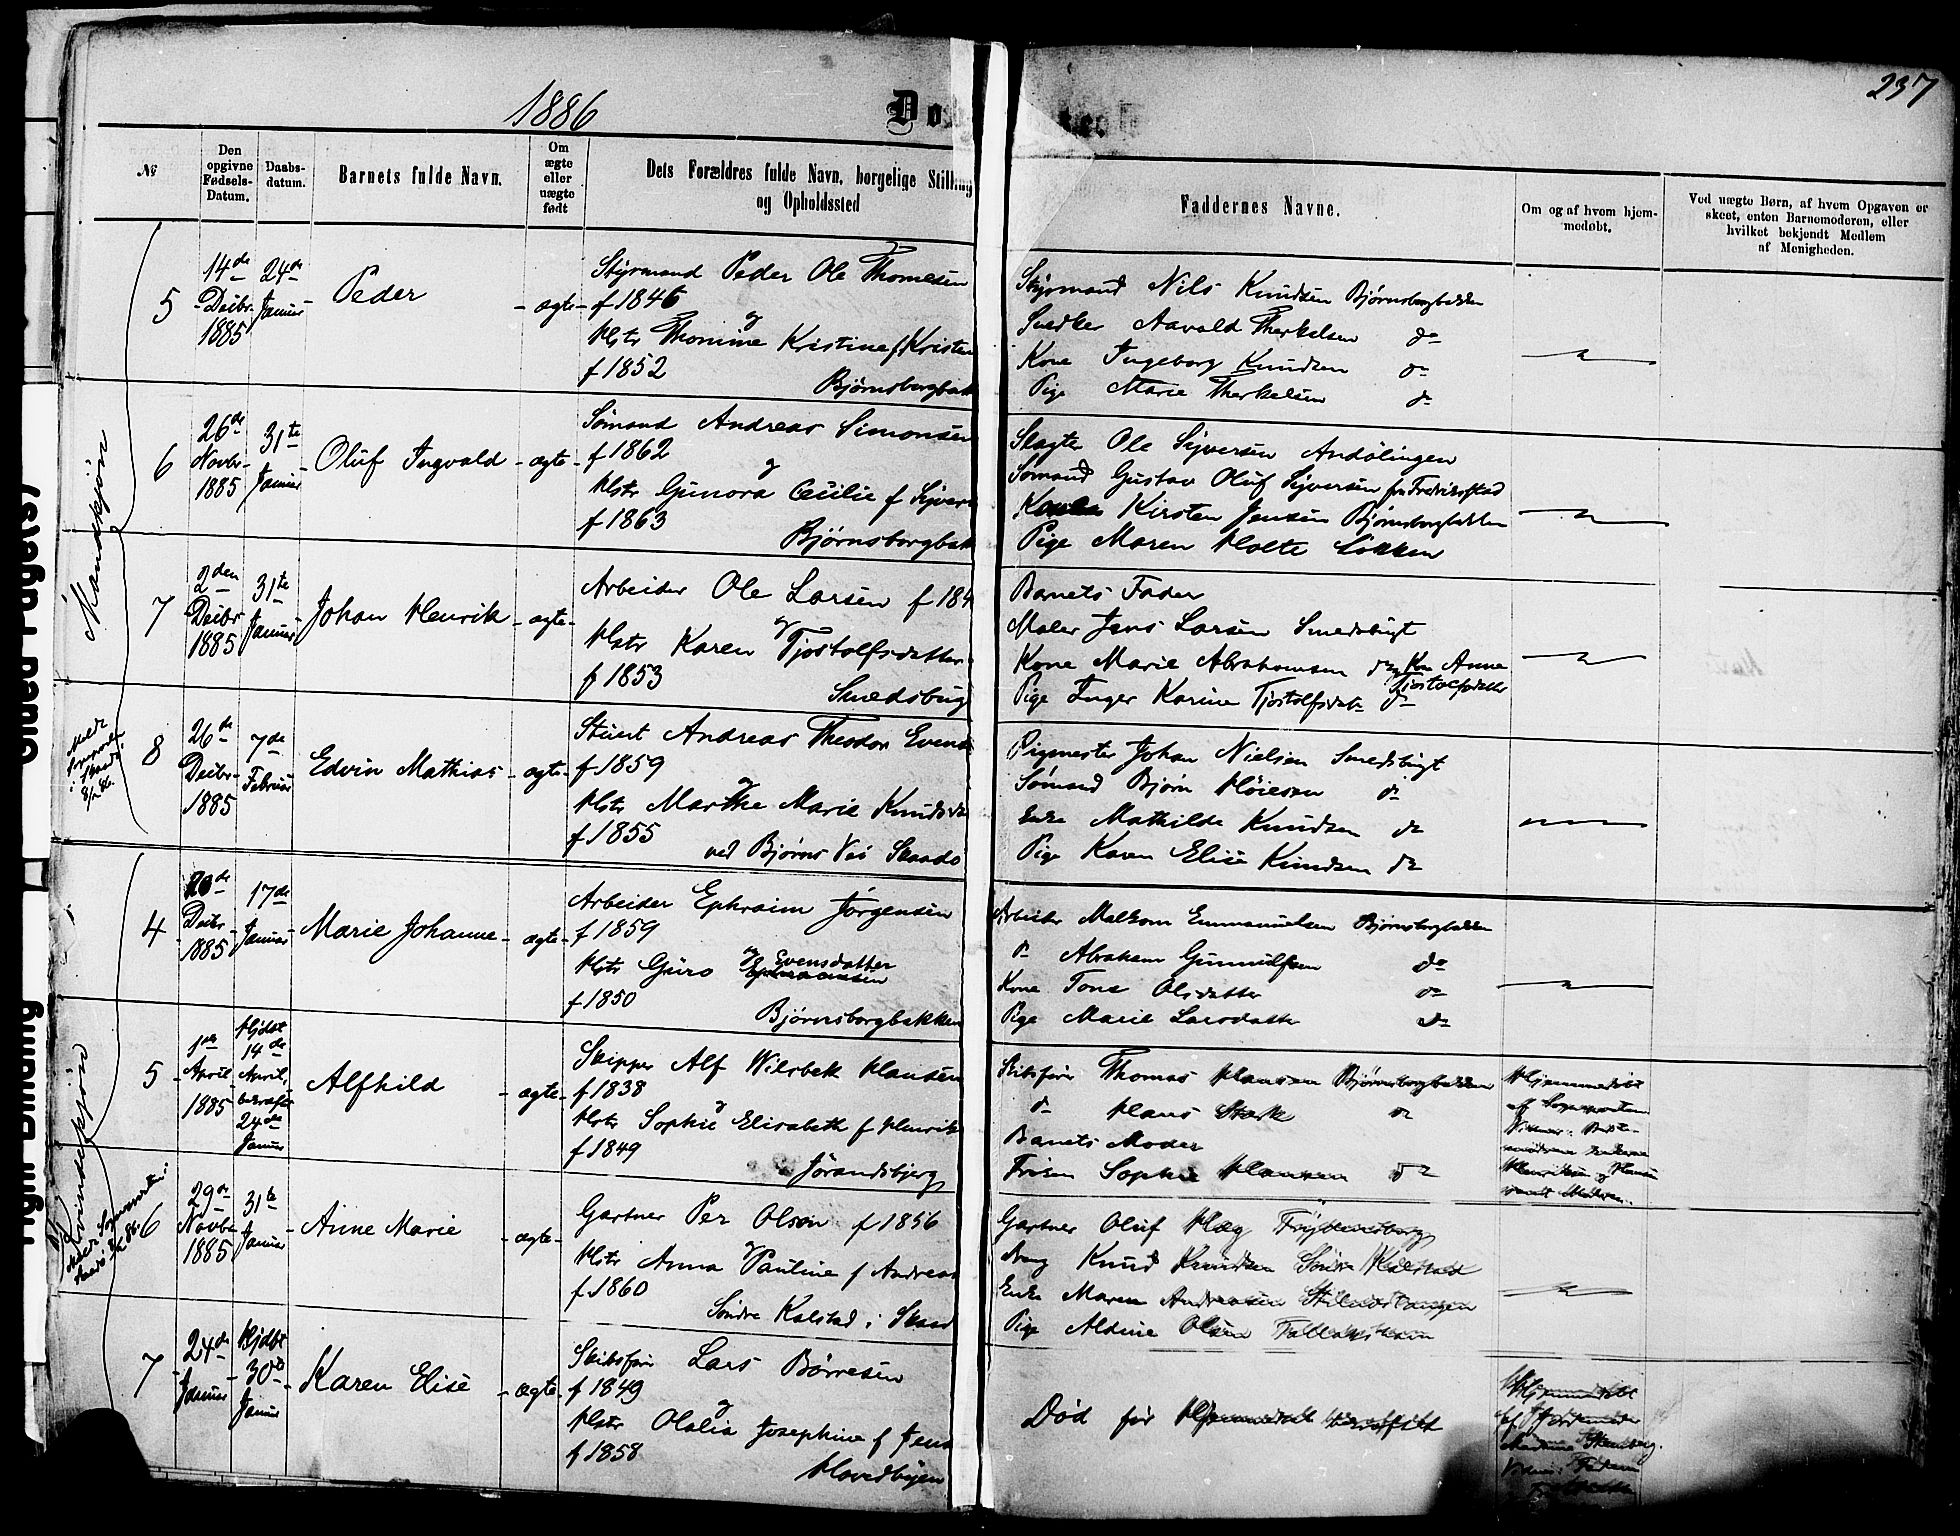 1886
237
№
Den opgivne Fødsels-Datum.
Daabs-datum.
Barnets fulde Navn.
Om ægte eller uægte født
Dets Forældres fulde Navn, borgelige Still
og Opholdssted
Faddernes Navne.
Om og af hvem hjem-
medøbt.
Ved uægte Børn, af hvem Opgaven er
skeet, enten Barnemoderen, eller
hvilket bekjendt Medlem
af Menigheden.
Mandkjøn
5
14de Decbr 1885
24de Januar
Peder
ægte
Styrmand Peder Ole Thomesen
f 1846
og
Hstr Thomine Kristine f Kristen
f 1852
Bjørnsborgbak
Styrmand Nils Knudsen Bjørnsborgbakken
Snedker Aavald Therkelsen do
Kone Ingeborg Knudsen do
Pige Marie Therkelsen do
6
26de Novbr 1885
31te Januar
Oluf Ingvald
ægte
Sømand Andreas Simonsen
f 1862
og
Hstr Gunora Cecilie f Syver
f 1863
Bjørnsborgbak
Slagter Ole Syversen Andølingen
Sømand Gustav Oluf Syversen fra Fredriksstad
Kirsten Jensen Bjørnsborgbakken
Pige Maren Holte Løkken
7
2den Decbr 1885
31te Januar
Johan Henrik
ægte
Arbeider Ole Larsen f 184
og
Hstr Karen Tjostolfsdatter
f 1853
Smedsbug
Barnets Fader
Maler Jens Larsen Smedsbugt
Kone Marie Abrahamsen do Kone Anne
Tjostolfsdatter
Pige Inger Karine Tjostolfsdatr do
8
26de Decbr 1885
7de Februar
Edvin Mathias
ægte
Stuert Andreas Theodor Evens
f 1859
og
Hstr Marthe Marie Knudsda
f 1855
ved Bjørns Vei Skaadø
Pigmester Johan Nielsen Smedsbugt
Sømand Bjørn Høiesen do
Enke Mathilde Knudsen do
Pige Karen Elise Knudsen do
Kvindekjøn
4
20de Decbr 1885
17de Januar
Marie Johanne
ægte
Arbeider Ephraim Jørgensen
f 1859
og Evensdatter
Hstr Guro
f 1850
Bjørnsborgbakken
Arbeider Malkom Emmanuelsen Bjørnsborgbakken
do Abraham Gunnulfsen do
Kone Tone Olsdatter do
Pige Marie Larsdatter do
5
1ste April 1885
Hjdbt 14de April, bekræftet 24de Januar
Alfhild
ægte
Skipper Alf Wilsbek Hansen
f 1838
og
Hstr Sophie Elisabeth f Henrik
f 1849
Jørandsbjerg
Skibsfører Thomas Hansen Bjørnsborgbakken
do Hans Stark do
Barnets Moder
Frøken Sophie Hansen do
Hjemmedøbt
af Sognepresten
6
29de Novbr 1885
31te Januar
Anne Marie
ægte
Gartner Per Olsen f 1856
og
Hstr Anna Pauline f Andreas
f 1860
Søndre Kalstad i Skaad
Gartner Oluf Hæg Frydensborg
Knud Knudsen Søndre Kalstad
Enke Maren Andreasen Stilnestangen
Pige Aldine Olsen
7
24de Januar
Hjdbt 30te Januar
Karen Elise
ægte
Skibsfører Lars Børresen
f 1849
og
Hstr Olalia Josephine f Jens
f 1858
Hovedbyen
Død før Hjemmedåb bekræftet
Hjemmedøbt
af Jordemoder